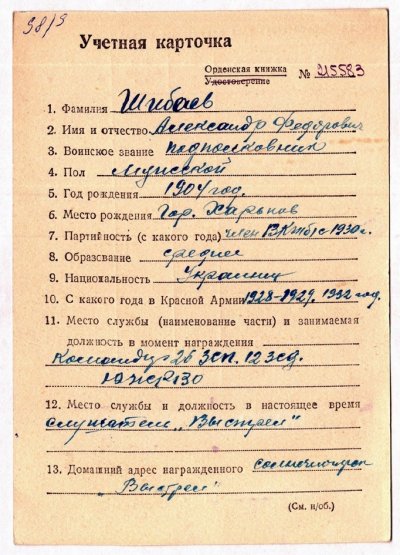 98/9
Учетная карточка
Орденская книжка
Удостоверение № 915583
1. Фамилия Шибаев
2. Имя и отчество Александр Федорович
3. Воинское звание подполковник
4. Пол Мужской
5. Год рождения 1904 год.
6. Место рождения Гор. Харьков
7. Партийность (с какого года) член ВКП/б с 1930 г.
8. Образование среднее
9. Национальность Украинец
10. С какого года в Красной Армии 1928-1929. 1932 год.
11. Место службы (наименование части) и занимаемая
должность в момент награждения
Командир 26 зсп. 12 зсд.
12. Место службы и должность в настоящее время
слушатель „Выстрел"
13. Домашний адрес награжденного солнечногорск
„Выстрел"
(См. н/об.)